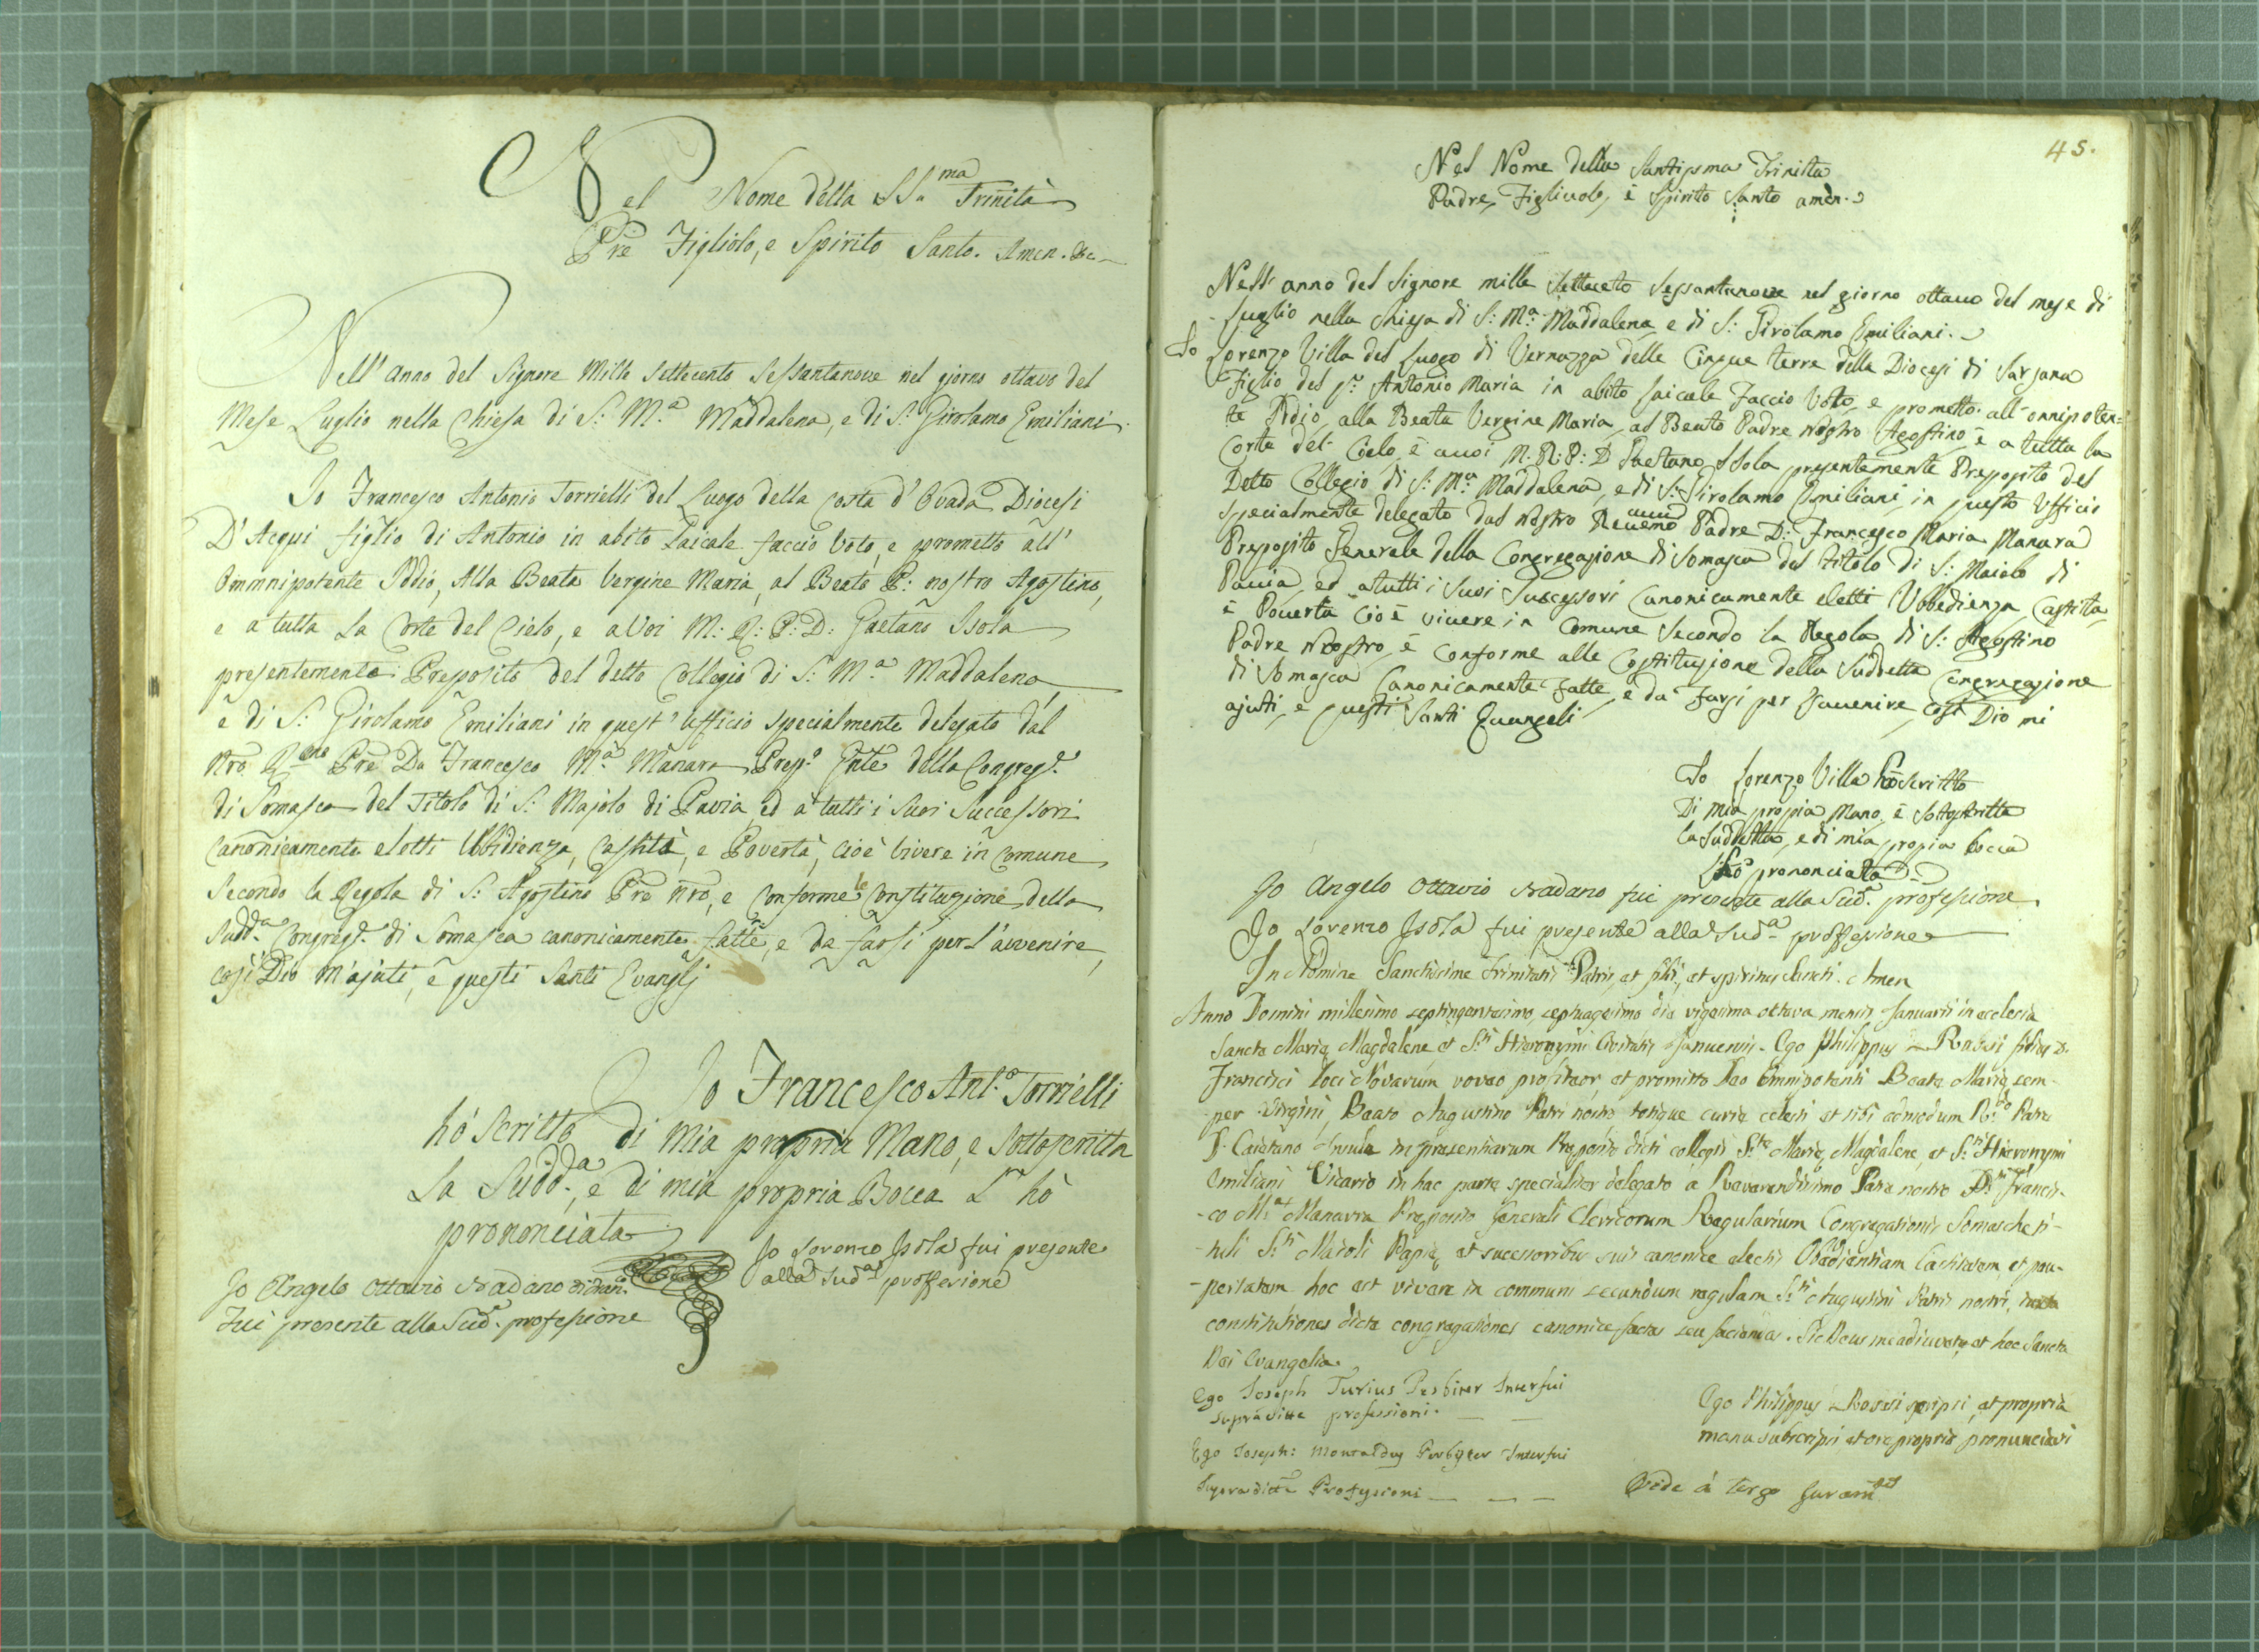 Nel Nome della SS.ma Trinità
Pre Figliolo, e Spirito Santo. Amen. &c
Nell' anno del Signore Mille Settecento Sessantanove nel giorno ottavo del
Mese Luglio nella Chiesa di S: M.a Maddalena, e di S: Girolamo Emiliani.
Io Francesco Antonio Torrielli del Luogo della Costa d'Ovada Diocesi
D'Acqui figlio di Antonio in abito Laicale faccio Voto, e prometto all'
Ommnipotente Iddio, Alla Beata Vergine Maria, al Beato P: nostro Agostino,
e a tutta La Corte del Cielo, e a Voi M: R: P: D: Gaetano Isola
presentemente Preposito del detto Collegio di S: M.a Maddalena,
e di S: Girolamo Emiliani in quest' ufficio specialmente delegato dal
Nro R.mo Pre Dn Francesco M.a Manara Prep.o Gnle della Congreg.e
di Somasca del Titolo di S: Majolo di Pavia, ed a tutti i suoi Successori
canonicamente eletti Ubbidienza, Castità, e Povertà, cioè vivere in comune
Secondo la Regola di S: Agostino Pre nro, e conforme le Constituzione della
Sudd.a Congreg.e di Somasca canonicamente fatte, e da farsi per l'avvenire,
così Dio m'ajuti, e questi Santi Evanglj
Io Francesco Ant.o Torrielli
hò scritto di mia propria Mano, e Sottoscritta
La Sudd.a, e di mia propria Bocca L' hò
prononciata
Io Lorenzo Isola fui presente
alla Sud.a proffesione
Io Angelo Ottavio Badano
Fui presente alla Sud.a professione
45.
Nel Nome della Santissma Trinitta
Padre, Figliuolo, è Spirito Santo amen.
Nell' anno del Signore mille setteceto sessantanove nel giorno ottauo del mese di
Luglio nella Chiesa di S: M.a Maddalena, e di S: Girolamo Emiliani.
Io Lorenzo Villa del Luogo di Vernazza delle Cinque terre della Diocesi di Sarzana
Figlio del q. Antonio Maria in abito laicale Faccio Voto, e prometto all' onnipoten=
te Iddio, alla Beata Vergine Maria, al Beato Padre Nostro Agostino, è a tutta la
Corte del Cielo, è auoi M. R: P: D Gaetano Isola presentemente Preposito del
Detto Collegio di S: M.a Maddalena, e di S: Girolamo Emiliani, in questo Ufficio
specialmente delegato dal Nostro Padre D: Francesco Maria Manara
Preposito Generale della Congregazione di Somasca del titolo di S: Maiolo di
Pauia, ed a tutti i suoi Successori Canonicamente eletti Vbbedienza, Castita,
è Pouerta cioè viuere in Comune Secondo la Regola, di S: Agostino
Padre Nostro, è conforme alle Costituzione della Suddetta Congregazione
di Somasca Canonicamente Fatte, e da Farsi per l'auuenire, così Dio mi
ajuti, e questi Santi Euangeli
Io Lorenzo Villa hò scritto
Di mia propia Mano, è Sottoscritta
la Suddetta, e di mia propia bocca
l'hò prononciata
Io Angelo Ottavio Badano fui presente alla Sud.a professione
Io Lorenzo Isola fui presente alla Sud.a proffesione
In Nomine Sanctissime Trinitatis Patris, et filii, et spiritus Sancti. Amen
Anno Domini millesimo septingentesimo septuagesimo die vigesima ottava mensis Januarii in ecclesia
Sancte Marie Magdalene et S.ti Hieronymi Civitatis Januensis. Ego Philippus Rossi filius D.
Francisci loci Novarum voveo profiteor, et promitto Deo Omnipotenti Beate Marie sem-
per Virgini, Beato Augustino Patri nostro totique curie celesti et tibi admodum R.do Patri
D. Caietano Insule in presentiarum Preposito dicti collegii S.te Marie Magdalene, et S.ti Hieronymi
Emiliani Vicario in hac parte specialiter delegato a Reverendissimo Patre nostro D. Francis-
-co M.a Manarra Preposito Generali Clericorum Regularium Congregationis Somasche ti-
-tuli S.ti Maioli Papie, et successoribus suis canonice electis Obedientiam Castitatem et pau-
-pertatem hoc est vivere in communi secundum regulam S.ti Augustini Patris nostri,
constitutiones dicte congregationes canonice factas seu faciendas. Sic Deus me adiuvet, et hec Sancta
Dei Evangelia.
Ego Joseph Turius Presbiter Interfui
Supradicte professioni.
Ego Philippus Rossi scripsi, et propria
manu subscripsi et ore proprio pronunciavi
Ego Joseph: Montaldus Presbyter Interfui
Supradicte Professioni
Vide à tergo